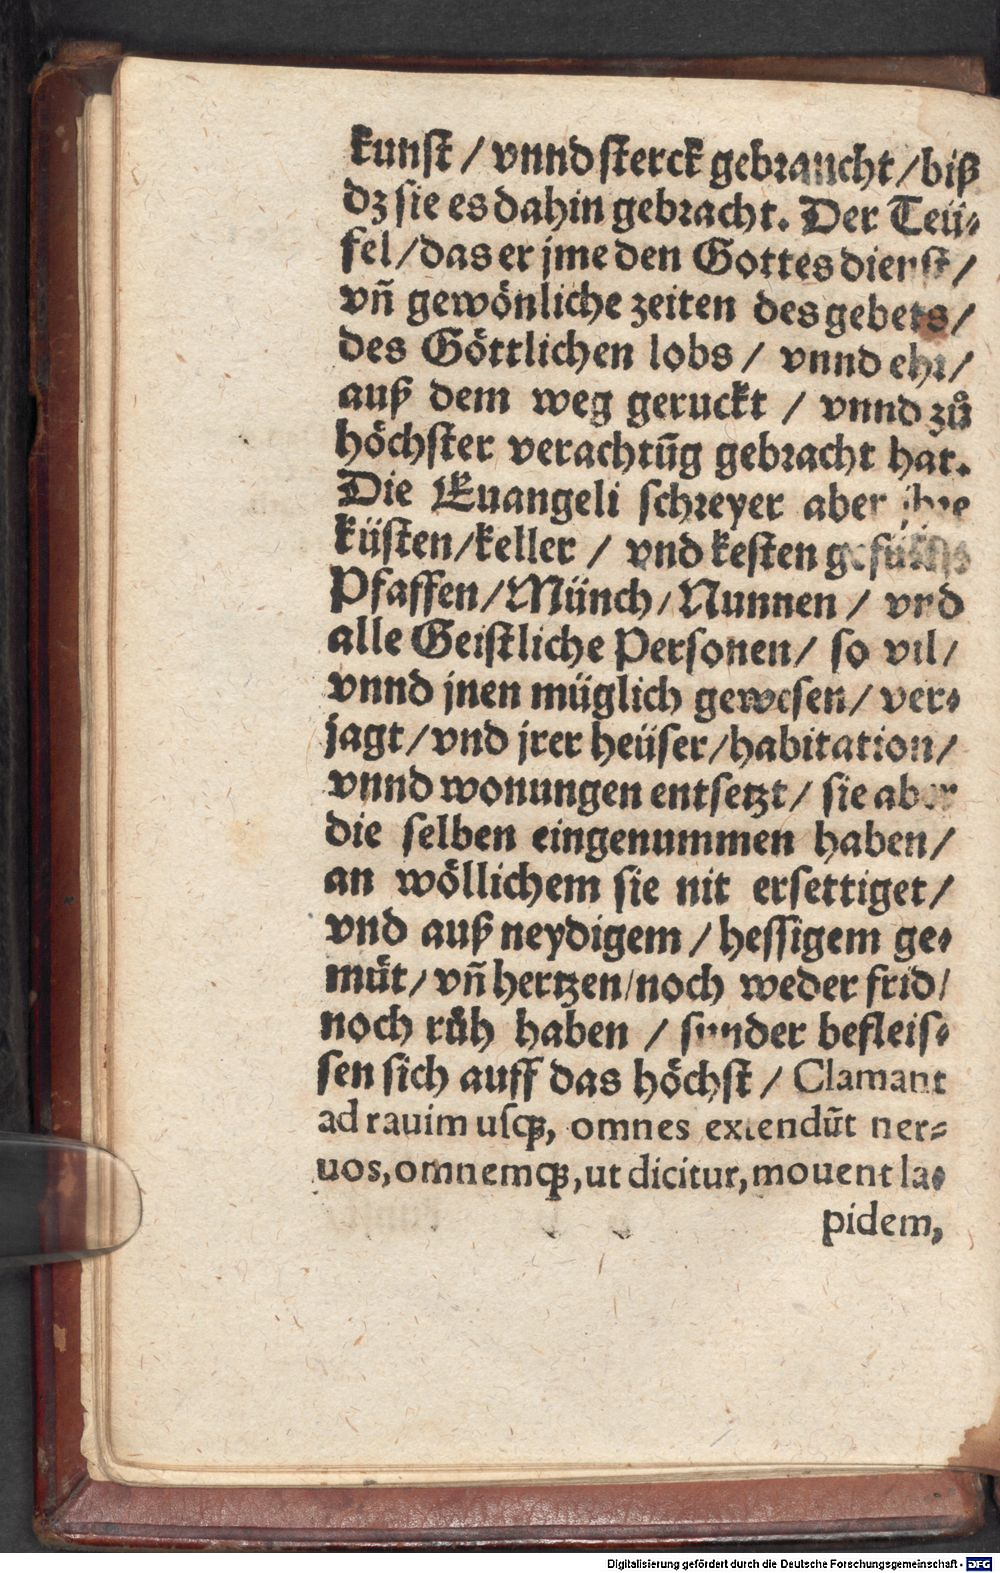 kunst / vnnd sterck gebraucht / biß
dz sie es dahin gebracht. Der Teü⸗
fel / das er jme den Gottes dienst /
vñ gewönliche zeiten des gebets /
des Göttlichen lobs / vnnd ehr /
auß dem weg geruckt / vnnd zů
höchster verachtũg gebracht hat.
Die Euangeli schreyer aber ihre
küsten / keller / vnd kesten
Pfaffen / Münch / Nunnen / vnd
alle Geistliche Personen / so vil /
vnnd jnen müglich gewesen / ver⸗
jagt / vnd jrer heüser / habitation /
vnnd wonungen entsetzt / sie aber
die selben eingenummen haben /
an wöllichem sie nit ersettiget /
vnd auß neydigem / hessigem ge⸗
müt / vñ hertzen / noch weder frid /
noch růh haben / sunder befleis⸗
sen sich auff das höchst / Clamant
ad rauim usq;, omnes extendũt ner⸗
uos, omnemq;, ut dicitur, mouent la⸗
pidem,
Digitalisierung gefördert durch die Deutsche Forschungsgemeinschaft - DFG